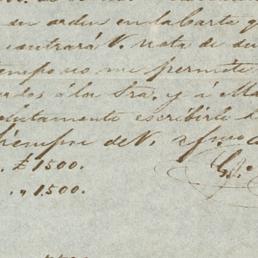 su orden en la carta q
contrará V. nota de su
tiempo no me permite
á la Sra. y á Ma
lutamente escribirle
siempre de V. afmo
£ 1500.
" 1.500.